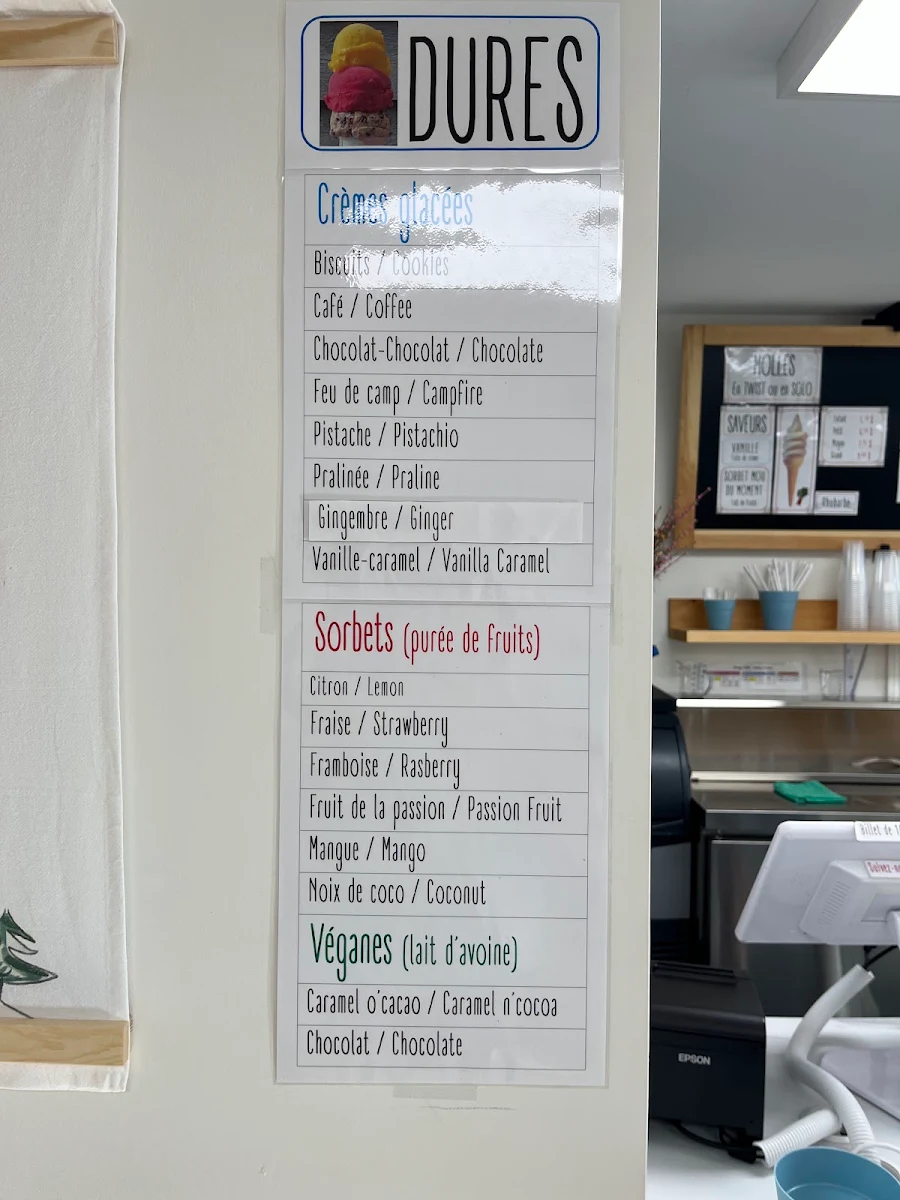 DURES
Crèmes glacées
Biscuits / Cookies
Café / Coffee
Chocolat-Chocolat / Chocolate
Feu de camp / Campfire
Pistache / Pistachio
Pralinée / Praline
Gingembre / Ginger
Vanille-caramel / Vanilla Caramel
Sorbets (purée de fruits)
Citron / Lemon
Fraise / Strawberry
Framboise / Rasberry
Fruit de la passion / Passion Fruit
Mangue / Mango
Noix de coco / Coconut
Véganes (lait d'avoine)
Caramel o'cacao / Caramel n'cocoa
Chocolat / Chocolate
MOLLES
En TWIST ou en SOLO
SAVEURS
VANILLE
SORBET MOU
DU MOMENT
Rhubarbe
Billet de
EPSON